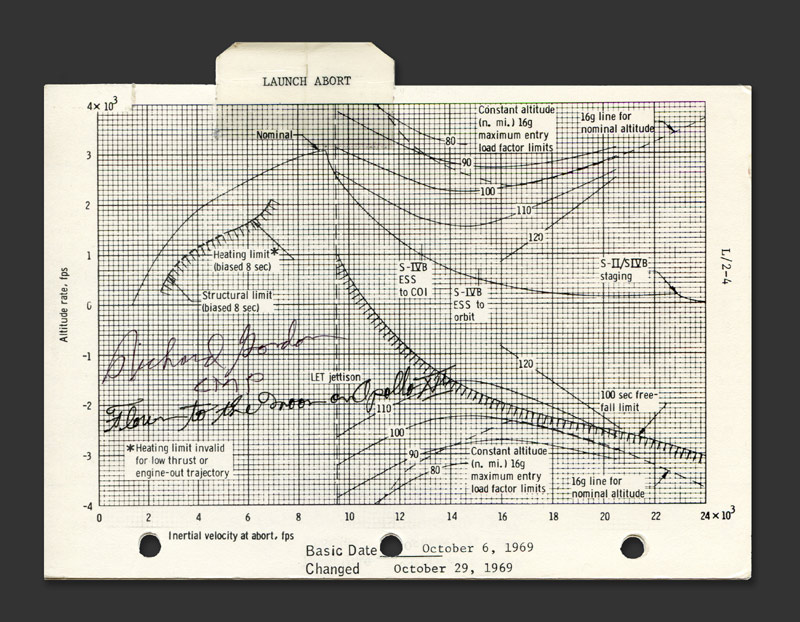 LAUNCH ABORT
4×10³
Nominal
Constant altitude
(n. mi.) 16g
maximum entry
load factor limits
16g line for
nominal altitude
80
90
100
110
120
3
2
1
0
-1
-2
-3
-4
Altitude rate, fps
Heating limit*
(biased 8 sec)
Structural limit
(biased 8 sec)
S-IVB
ESS
to COI
S-IVB
ESS to
orbit
S-II/SIVB
staging
L/2-4
Richard Gordon
CMP
Flown to the Moon on Apollo XII
LET jettison
120
110
100
90
80
100 sec free-
fall limit
*Heating limit invalid
for low thrust or
engine-out trajectory
Constant altitude
(n. mi.) 16g
maximum entry
load factor limits
16g line for
nominal altitude
0 2 4 6 8 10 12 14 16 18 20 22 24×10³
Inertial velocity at abort, fps
Basic Date October 6, 1969
Changed October 29, 1969